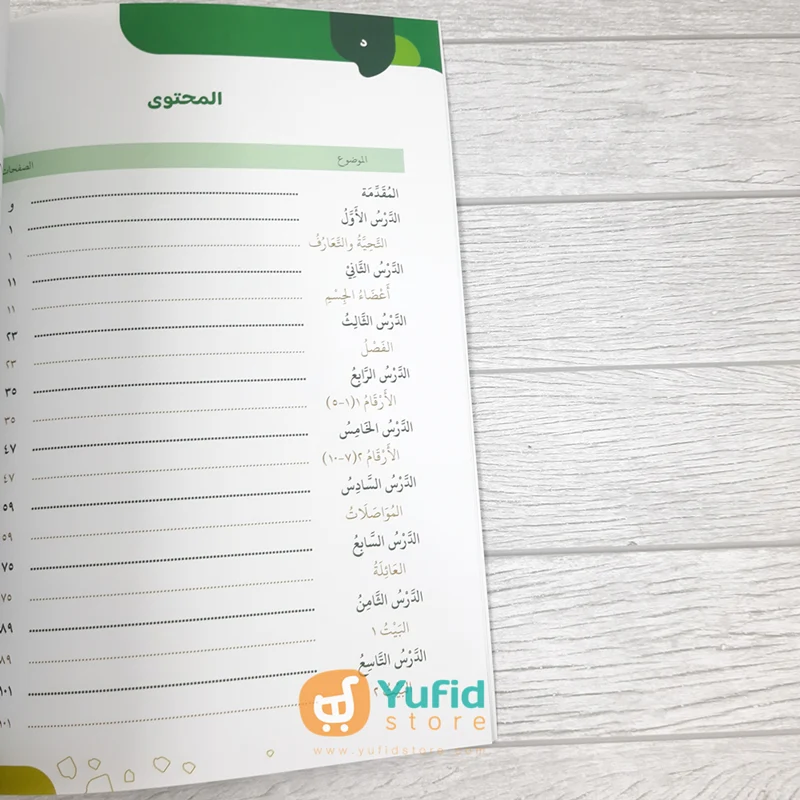 ٥
المحتوى
الموضوع الصفحات
المُقَدِّمَة ................ و
الدَّرْسُ الأَوَّلُ ................ ١
التَّحِيَّةُ والتَّعَارُفُ ................ ١
الدَّرْسُ الثَّانِيْ ................ ١١
أَعْضَاءُ الجِسْمِ ................ ١١
الدَّرْسُ الثَّالِثُ ................ ٢٣
الفَصْلُ ................ ٢٣
الدَّرْسُ الرَّابِعُ ................ ٣٥
الأَرْقَامُ ١(١-٥) ................ ٣٥
الدَّرْسُ الخَامِسُ ................ ٤٧
الأَرْقَامُ ٢(٧-١٠) ................ ٤٧
الدَّرْسُ السَّادِسُ ................ ٥٩
المُوَاصَلَاتُ ................ ٥٩
الدَّرْسُ السَّابِعُ ................ ٧٥
العَائِلَةُ ................ ٧٥
الدَّرْسُ الثَّامِنُ ................ ٨٩
البَيْتُ ١ ................ ٨٩
الدَّرْسُ التَّاسِعُ ................ ١٠١
البَيْتُ ٢ ................ ١٠١
Yufid
store
www.yufidstore.com